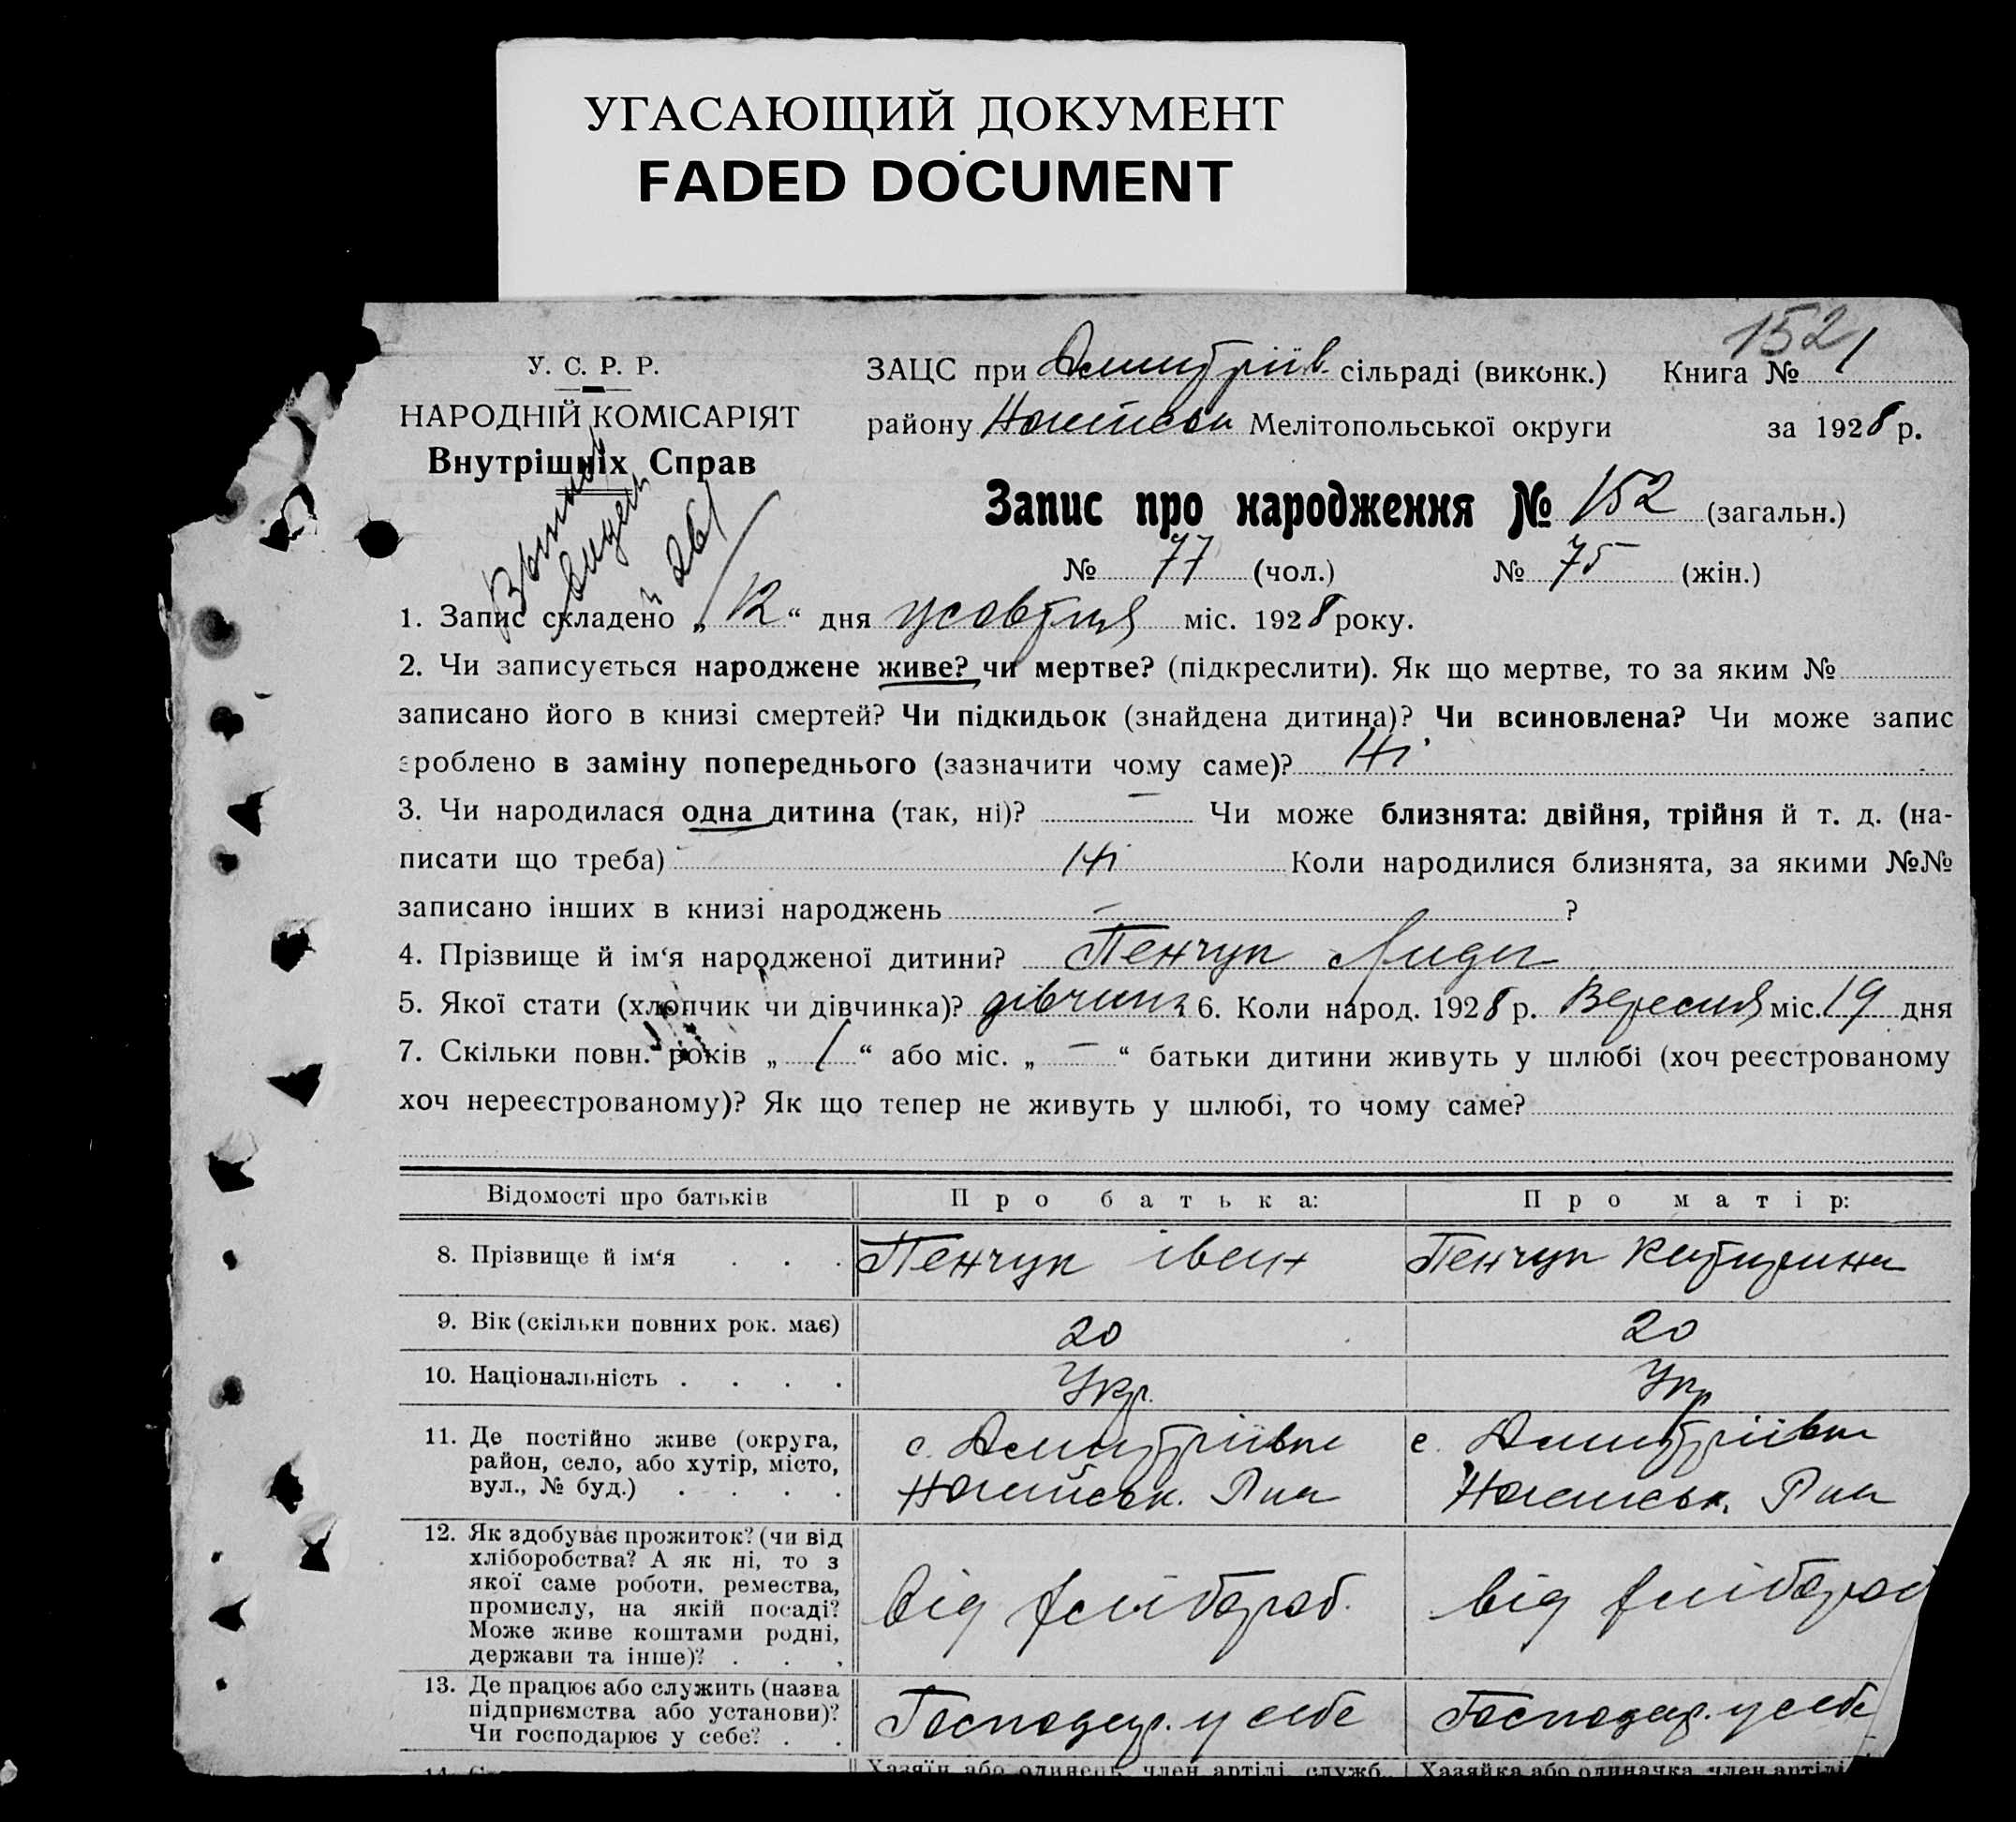 УГАСАЮЩИЙ ДОКУМЕНТ
FADED DOCUMENT
152
У. С. Р. Р.
НАРОДНІЙ КОМІСАРІЯТ
Внутрішніх Справ
ЗАЦС при Дмитріїв. сільраді (виконк.) Книга № 1
району Ногайськ Мелітопольської округи за 1928 р.
Запис про народження № 152 (загальн.)
№ 77 (чол.) № 75 (жін.)
1. Запис складено „12“ дня жовтня міс. 1928 року.
2. Чи записується народжене живе? чи мертве? (підкреслити). Як що мертве, то за яким №
записано його в книзі смертей? Чи підкидьок (знайдена дитина)? Чи всиновлена? Чи може запис
зроблено в заміну попереднього (зазначити чому саме)? Ні
3. Чи народилася одна дитина (так, ні)? — Чи може близнята: двійня, трійня й т. д. (на-
писати що треба) Ні Коли народилися близнята, за якими №№
записано інших в книзі народжень — ?
4. Прізвище й ім‘я народженої дитини? Пенчук Лида
5. Якої стати (хлопчик чи дівчинка)? дівчина 6. Коли народ. 1928 р. Вересня міс. 19 дня
7. Скільки повн. років „1“ або міс. „—“ батьки дитини живуть у шлюбі (хоч реєстрованому
хоч нереєстрованому)? Як що тепер не живуть у шлюбі, то чому саме?
Відомості про батьків Про батька: Про матір:
8. Прізвище й ім‘я . . . Пенчук Іван Пенчук Катирина
9. Вік (скільки повних рок. має) 20 20
10. Національність . . . . Укр. Укр
11. Де постійно живе (округа,
район, село, або хутір, місто,
вул., № буд.) . . . .
с. Дмитріївка
Ногайськ. Р-на
с. Дмитріївка
Ногайськ. Р-на
12. Як здобуває прожиток? (чи від
хліборобства? А як ні, то з
якої саме роботи, ремества,
промислу, на якій посаді?
Може живе коштами родні,
держави та інше)? . . .
від хлібороб.
від хлібороб
13. Де працює або служить (назва
підприємства або установи)?
Чи господарює у себе? . .
Господар. у себе
Господар. у себе
Хазяїн або одинець, член артілі, служб. Хазяйка або одиначка, член артілі